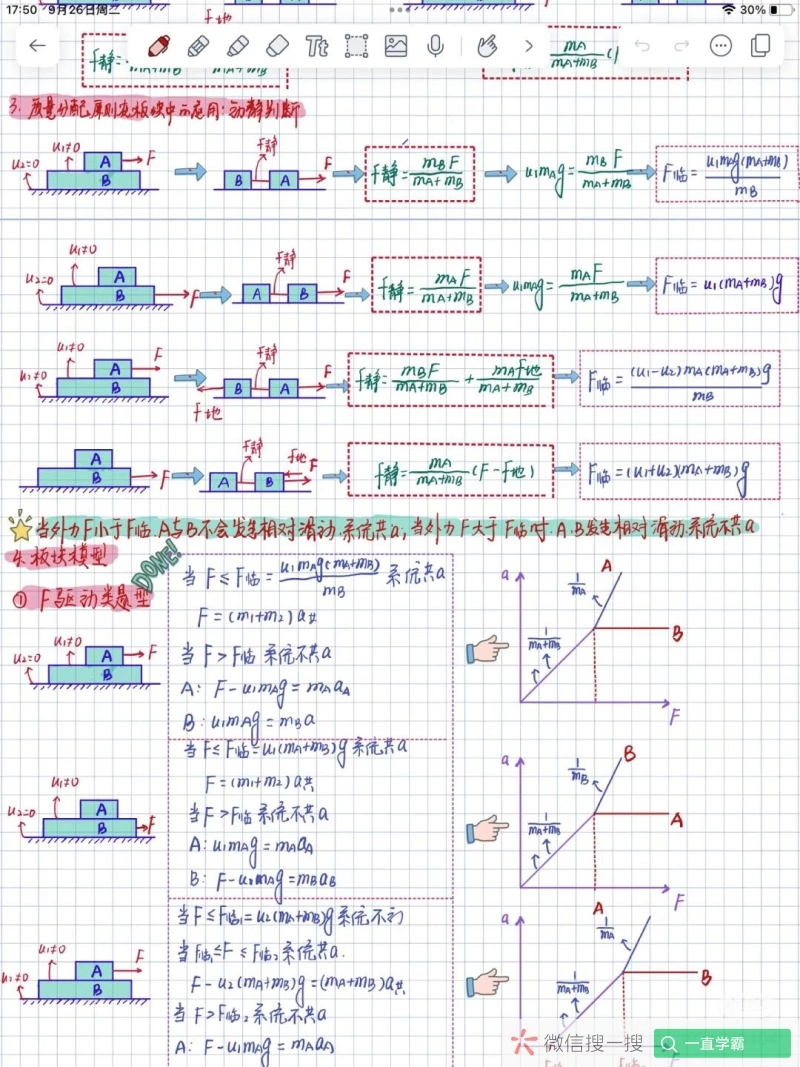 17:50 9月26日周二
30%
f地
Tt
f静=
mA+mB mA+mB
mA
mA+mB
3. 质量分配原则在板块中的应用:动静判断
u1≠0
u2=0
A
B
F
f静
B A
F
f静= mBF/(mA+mB)
u1mAg= mBF/(mA+mB)
F临= u1mAg(mA+mB)/mB
u1≠0
u2=0
A
B
F
f静
A B
F
f静= mAF/(mA+mB)
u1mAg= mAF/(mA+mB)
F临= u1(mA+mB)g
u1≠0
u2≠0
A
B
F
f静
B A
F
f地
f静= mBF/(mA+mB) + mAf地/(mA+mB)
F临= (u1-u2)mA(mA+mB)g/mB
A
B
F
f静
A B
f地
F
f静= mA/(mA+mB) (F-f地)
F临=(u1+u2)(mA+mB)g
当外力F小于F临.A与B不会发生相对滑动.系统共a,当外力F大于F临时.A.B发生相对滑动.系统不共a
4.板块模型
DONE!
① F驱动类题型
u1≠0
u2=0
A
B
F
当 F≤F临= u1mAg(mA+mB)/mB 系统共a
F=(m1+m2)a共
当 F>F临 系统不共a
A: F-u1mAg=mAaA
B: u1mAg=mBa
a
A
1/mA
B
1/(mA+mB)
F
u1≠0
u2=0
A
B
F
当 F≤F临=u1(mA+mB)g 系统共a
F=(m1+m2)a共
当 F>F临 系统不共a
A: u1mAg=mAaA
B: F-u1mAg=mBaB
a
B
1/mB
A
1/(mA+mB)
F
u1≠0
u2≠0
A
B
F
当F≤F临1=u2(mA+mB)g 系统不动
当F临1≤F≤F临2 系统共a.
F-u2(mA+mB)g=(mA+mB)a共
当 F>F临2 系统不共a
A: F-u1mAg=mAaA
a
A
1/mA
B
1/(mA+mB)
微信搜一搜
一直学霸